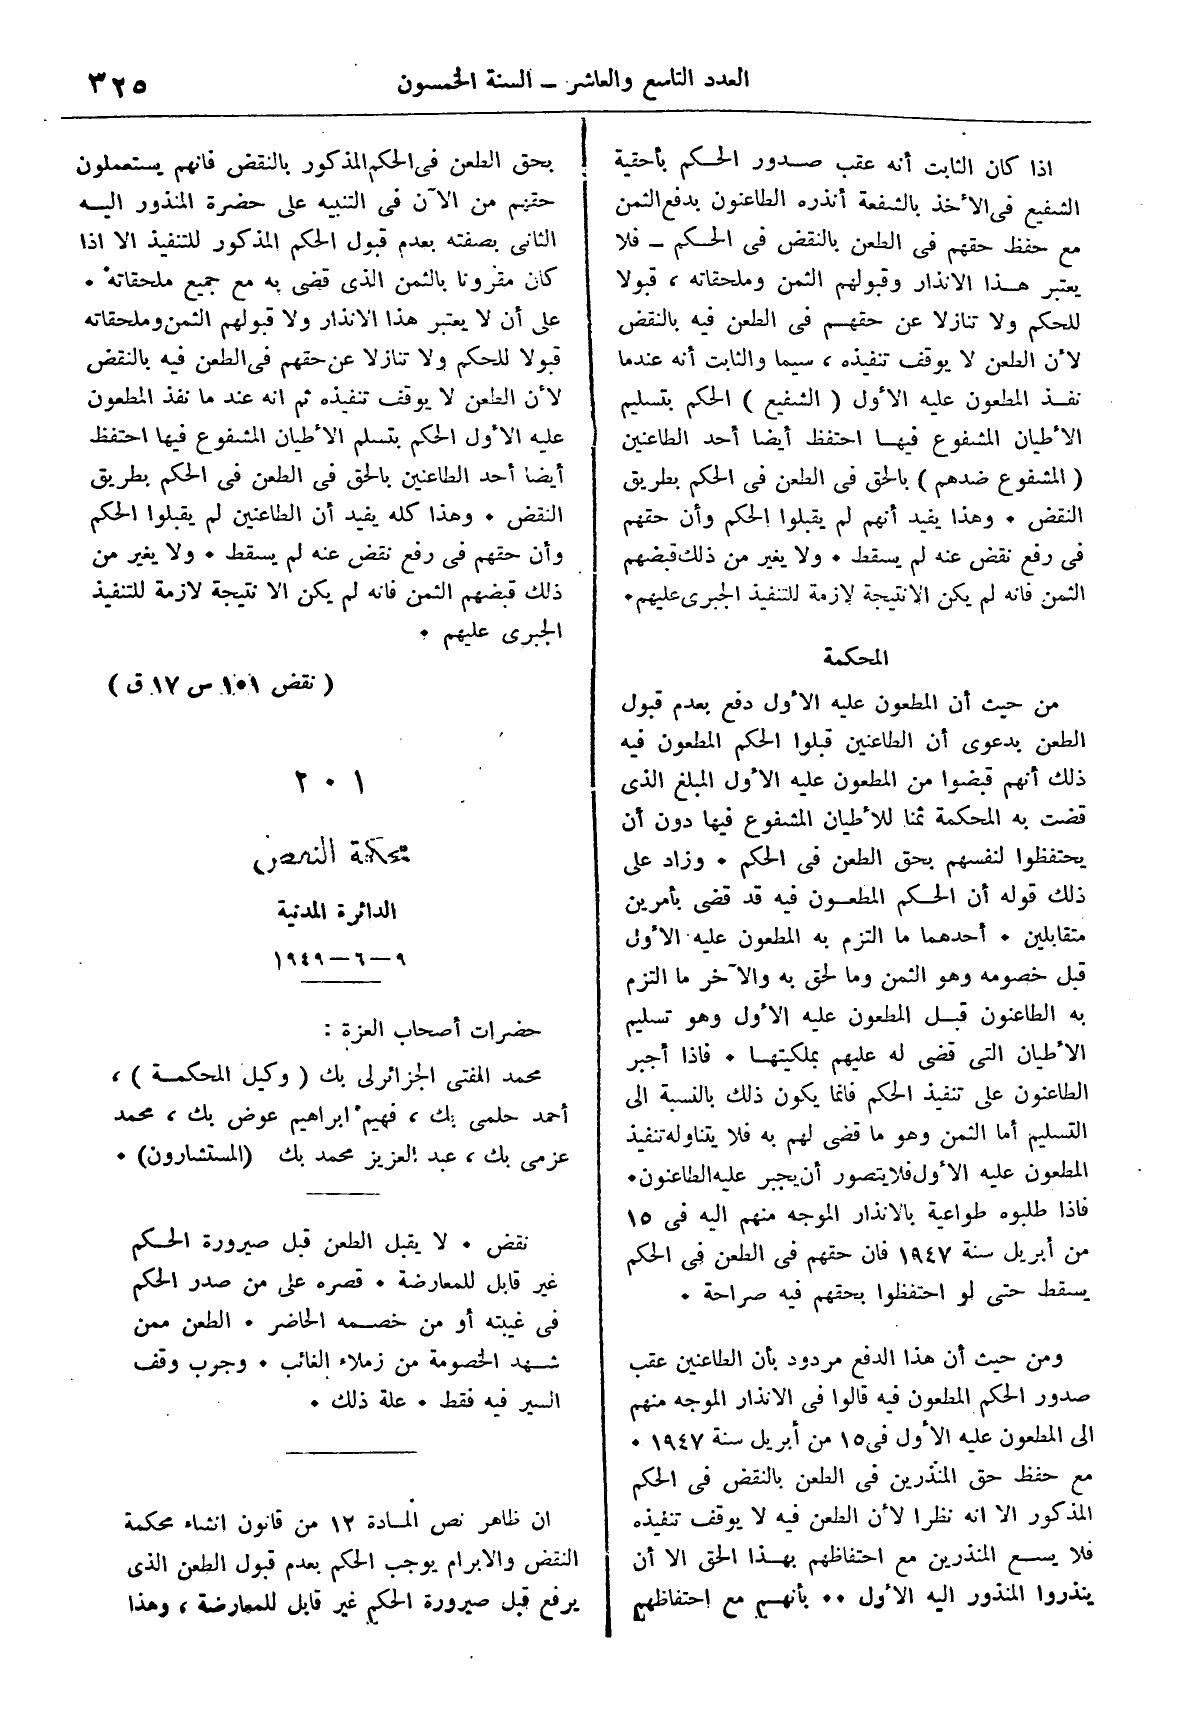 العدد التاسع والعاشر – السنة الخمسون
٣٢٥
اذا كان الثابت أنه عقب صدور الحكم بأحقية
الشفيع فى الأخذ بالشفعة أنذره الطاعنون بدفع الثمن
مع حفظ حقهم فى الطعن بالنقض فى الحكم – فلا
يعتبر هذا الانذار وقبولهم الثمن وملحقاته ، قبولا
للحكم ولا تنازلا عن حقهم فى الطعن فيه بالنقض
لأن الطعن لا يوقف تنفيذه ، سيما والثابت أنه عندما
نفذ المطعون عليه الأول ( الشفيع ) الحكم بتسليم
الأطيان المشفوع فيها احتفظ أيضا أحد الطاعنين
( المشفوع ضدهم ) بالحق فى الطعن فى الحكم بطريق
النقض ٠ وهذا يفيد أنهم لم يقبلوا الحكم وأن حقهم
فى رفع نقض عنه لم يسقط ٠ ولا يغير من ذلك قبضهم
الثمن فانه لم يكن الانتيجة لازمة للتنفيذ الجبرى عليهم٠
المحكمة
من حيث أن المطعون عليه الأول دفع بعدم قبول
الطعن بدعوى أن الطاعنين قبلوا الحكم المطعون فيه
ذلك أنهم قبضوا من المطعون عليه الأول المبلغ الذى
قضت به المحكمة ثمنا للأطيان المشفوع فيها دون أن
يحتفظوا لنفسهم بحق الطعن فى الحكم ٠ وزاد على
ذلك قوله أن الحكم المطعون فيه قد قضى بأمرين
متقابلين ٠ أحدهما ما التزم به المطعون عليه الأول
قبل خصومه وهو الثمن وما لحق به والآخر ما التزم
به الطاعنون قبل المطعون عليه الأول وهو تسليم
الأطيان التى قضى له عليهم بملكيتها ٠ فاذا أجبر
الطاعنون على تنفيذ الحكم فانما يكون ذلك بالنسبة الى
التسليم أما الثمن وهو ما قضى لهم به فلا يتناوله تنفيذ
المطعون عليه الأول فلا يتصور أن يجبر عليه الطاعنون٠
فاذا طلبوه طواعية بالانذار الموجه منهم اليه فى ١٥
من أبريل سنة ١٩٤٧ فان حقهم فى الطعن فى الحكم
يسقط حتى لو احتفظوا بحقهم فيه صراحة ٠
ومن حيث أن هذا الدفع مردود بأن الطاعنين عقب
صدور الحكم المطعون فيه قالوا فى الانذار الموجه منهم
الى المطعون عليه الأول فى ١٥ من أبريل سنة ١٩٤٧ ٠
مع حفظ حق المنذرين فى الطعن بالنقض فى الحكم
المذكور الا انه نظرا لأن الطعن فيه لا يوقف تنفيذه
فلا يسع المنذرين مع احتفاظهم بهذا الحق الا أن
ينذروا المنذور اليه الأول ٠٠ بأنهم مع احتفاظهم
بحق الطعن فى الحكم المذكور بالنقض فانهم يستعملون
حقهم من الآن فى التنبيه على حضرة المنذور اليه
الثانى بصفته بعدم قبول الحكم المذكور للتنفيذ الا اذا
كان مقرونا بالثمن الذى قضى به مع جميع ملحقاته ٠
على أن لا يعتبر هذا الانذار ولا قبولهم الثمن وملحقاته
قبولا للحكم ولا تنازلا عن حقهم فى الطعن فيه بالنقض
لأن الطعن لا يوقف تنفيذه ثم انه عند ما نفذ المطعون
عليه الأول الحكم بتسلم الأطيان المشفوع فيها احتفظ
أيضا أحد الطاعنين بالحق فى الطعن فى الحكم بطريق
النقض ٠ وهذا كله يفيد أن الطاعنين لم يقبلوا الحكم
وأن حقهم فى رفع نقض عنه لم يسقط ٠ ولا يغير من
ذلك قبضهم الثمن فانه لم يكن الا نتيجة لازمة للتنفيذ
الجبرى عليهم ٠
( نقض ١٠١ س ١٧ ق )
٢٠١
محكمة النقض
الدائرة المدنية
٩–٦–١٩٤٩
حضرات أصحاب العزة :
محمد المفتى الجزائرلى بك ( وكيل المحكمة ) ،
أحمد حلمى بك ، فهيم ابراهيم عوض بك ، محمد
عزمى بك ، عبد العزيز محمد بك (المستشارون) ٠
نقض ٠ لا يقبل الطعن قبل صيرورة الحكم
غير قابل للمعارضة ٠ قصره على من صدر الحكم
فى غيبته أو من خصمه الحاضر ٠ الطعن ممن
شهد الخصومة من زملاء الغائب ٠ وجوب وقف
السير فيه فقط ٠ علة ذلك ٠
ان ظاهر نص المادة ١٢ من قانون انشاء محكمة
النقض والابرام يوجب الحكم بعدم قبول الطعن الذى
يرفع قبل صيرورة الحكم غير قابل للمعارضة ، وهذا